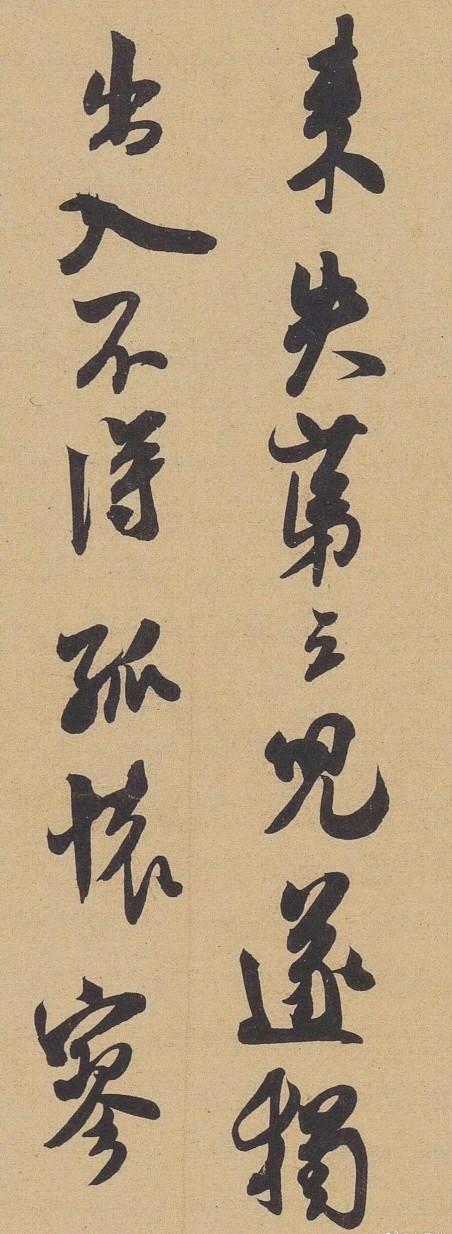 来失第三儿遂獨
出入不得孤懷寥